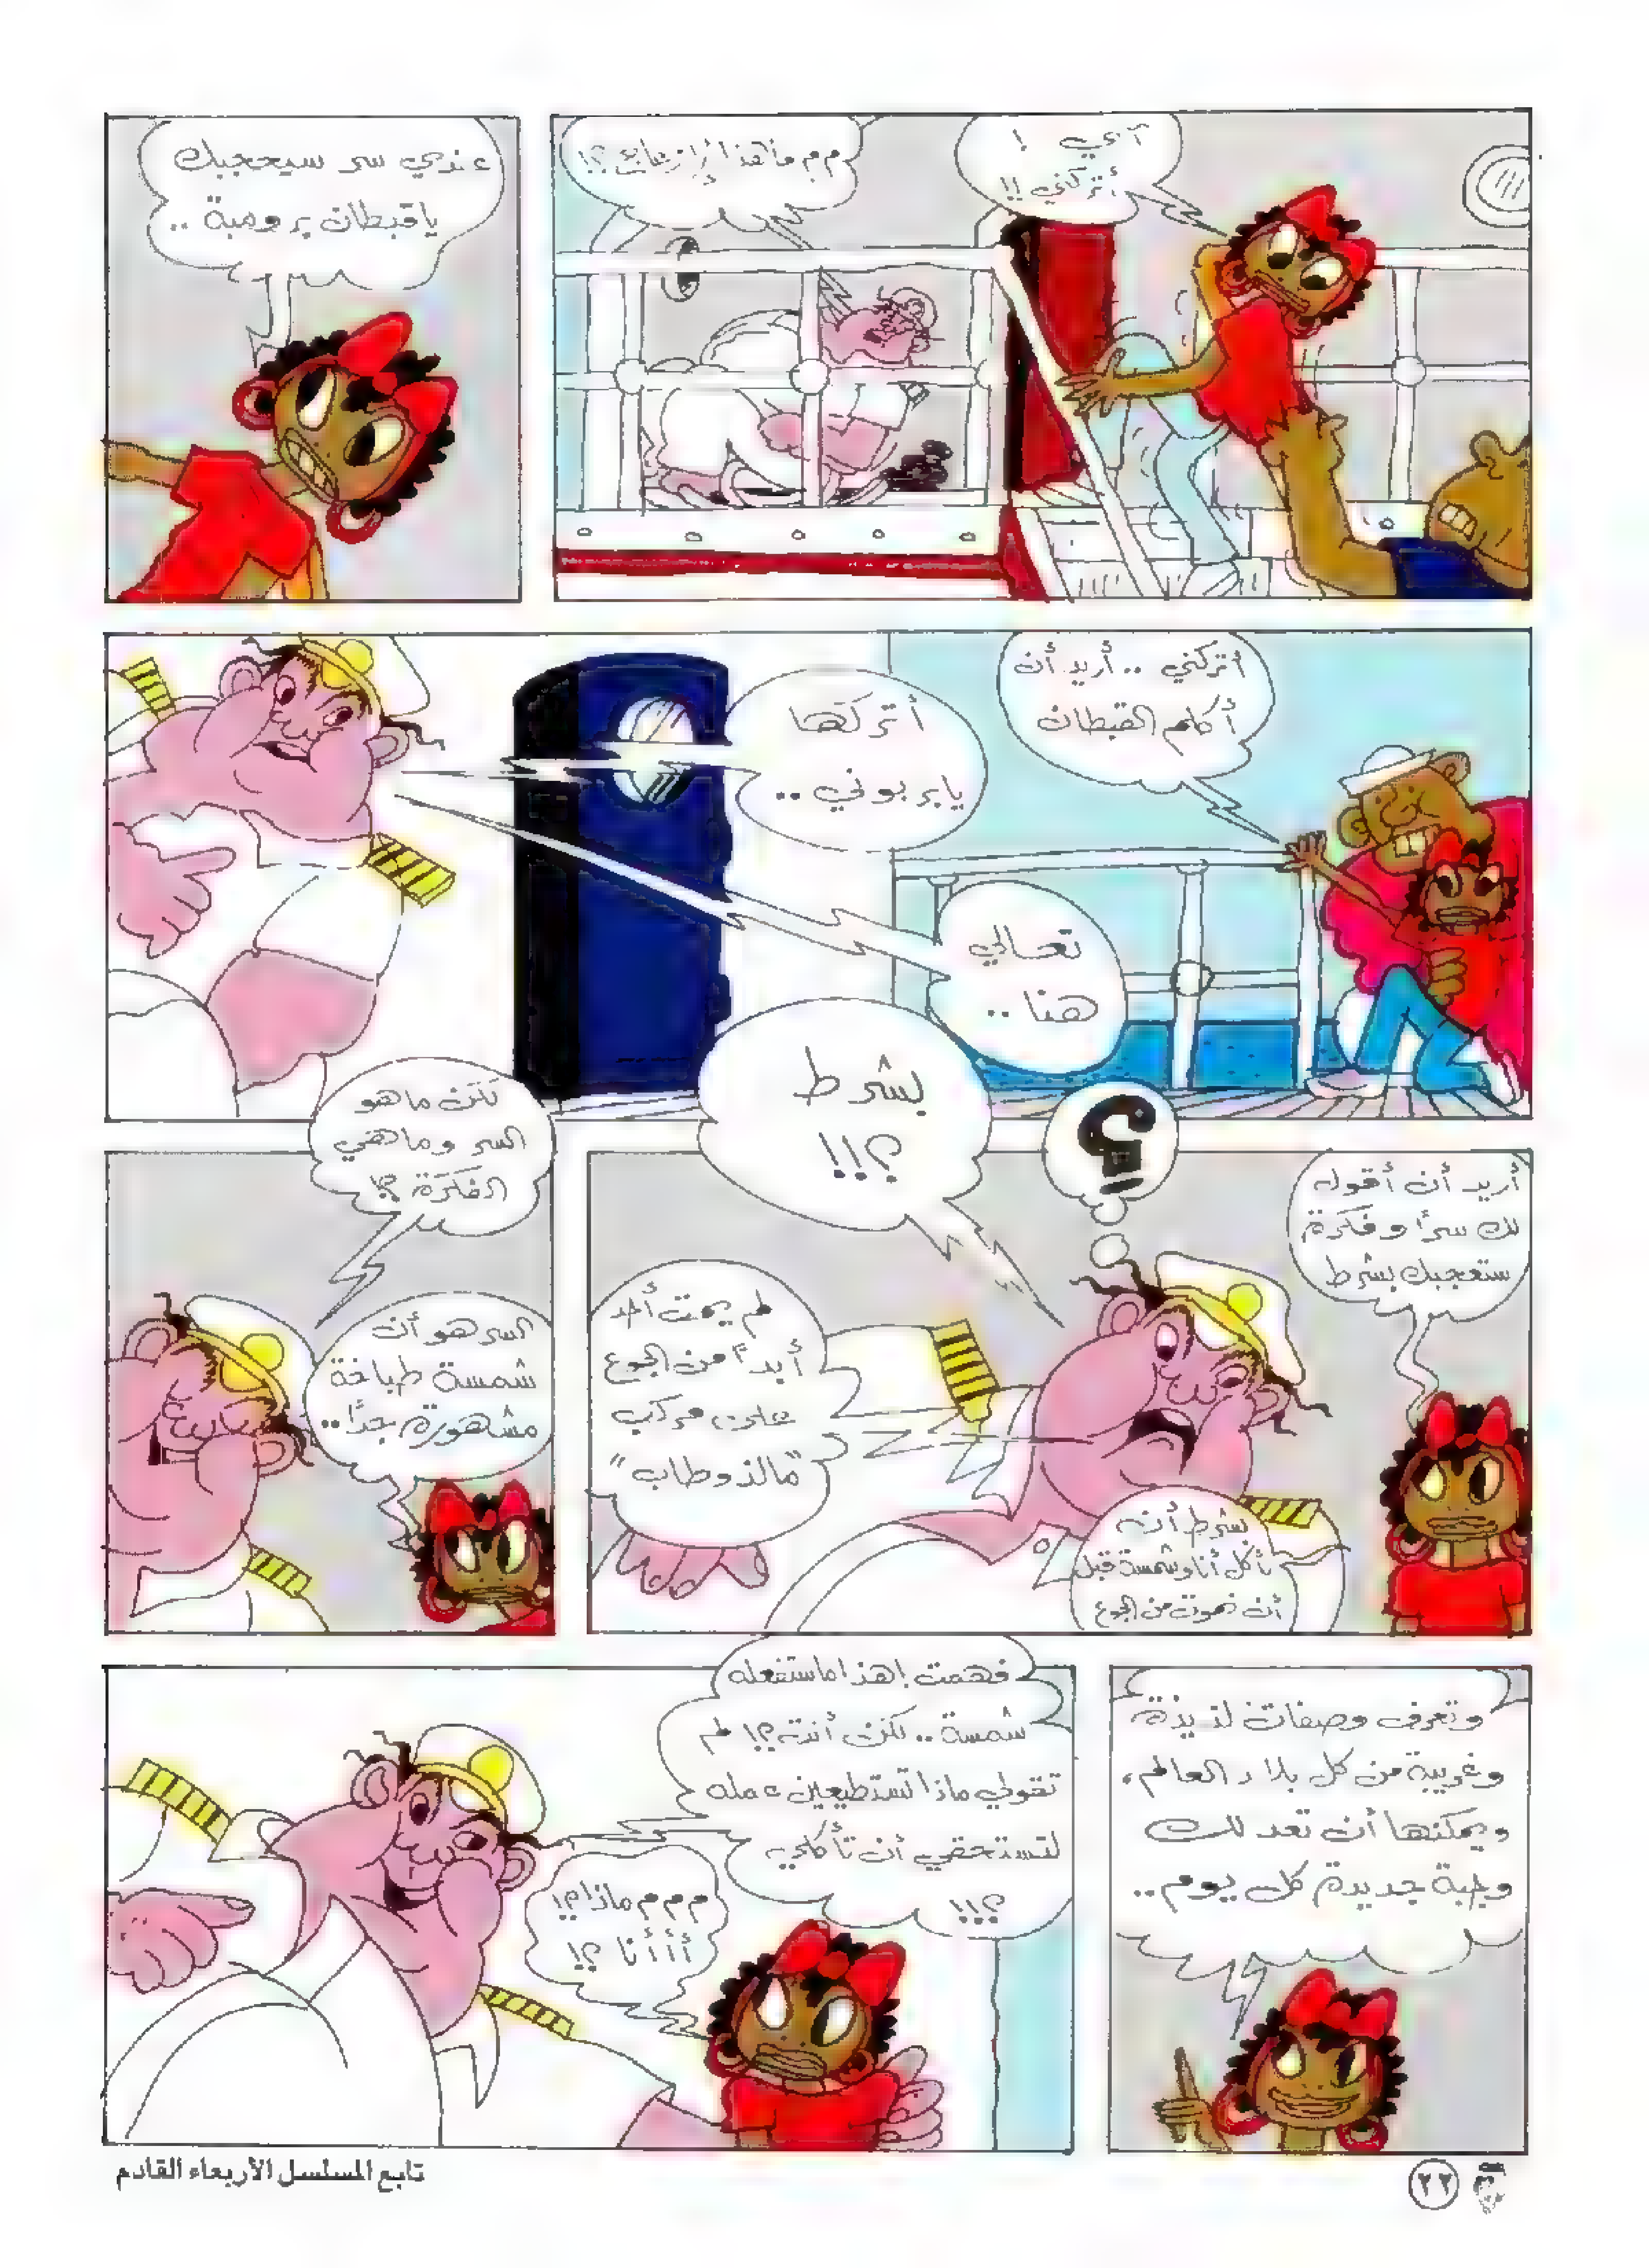 آآي !
أتركني !!
م م ماهذا الإزعاج ؟!
عندي سر سيعجبك
ياقبطان برومبة ..
أتركني .. أريد أن
أكلم القبطان
أتركها
يابربوني ..
تعالي
هنا ..
أريد أن أقول
لك سراً وفكرة
ستعجبك بشرط
بشرط
؟!!
لم يمت أحد
أبداً من الجوع
على مركب
"مالذ وطاب"
بشرط أن
نأكل أنا وشمسة قبل
أن نموت من الجوع
لكن ماهو
السر وماهي
الفكرة ؟!
السر هو أن
شمسة طباخة
مشهورة جداً..
وتعرف وصفات لذيذة
وغريبة من كل بلاد العالم،
ويمكنها أن تعد لك
وجبة جديدة كل يوم..
فهمت ! هذا ماستفعله
شمسة .. لكن أنت ؟! لم
تقولي ماذا تستطيعين عمله
لتستحقي أن تأكلي
؟!!
م م م ماذا ؟!
أ أ أنا ؟!
٢٢
تابع المسلسل الأربعاء القادم